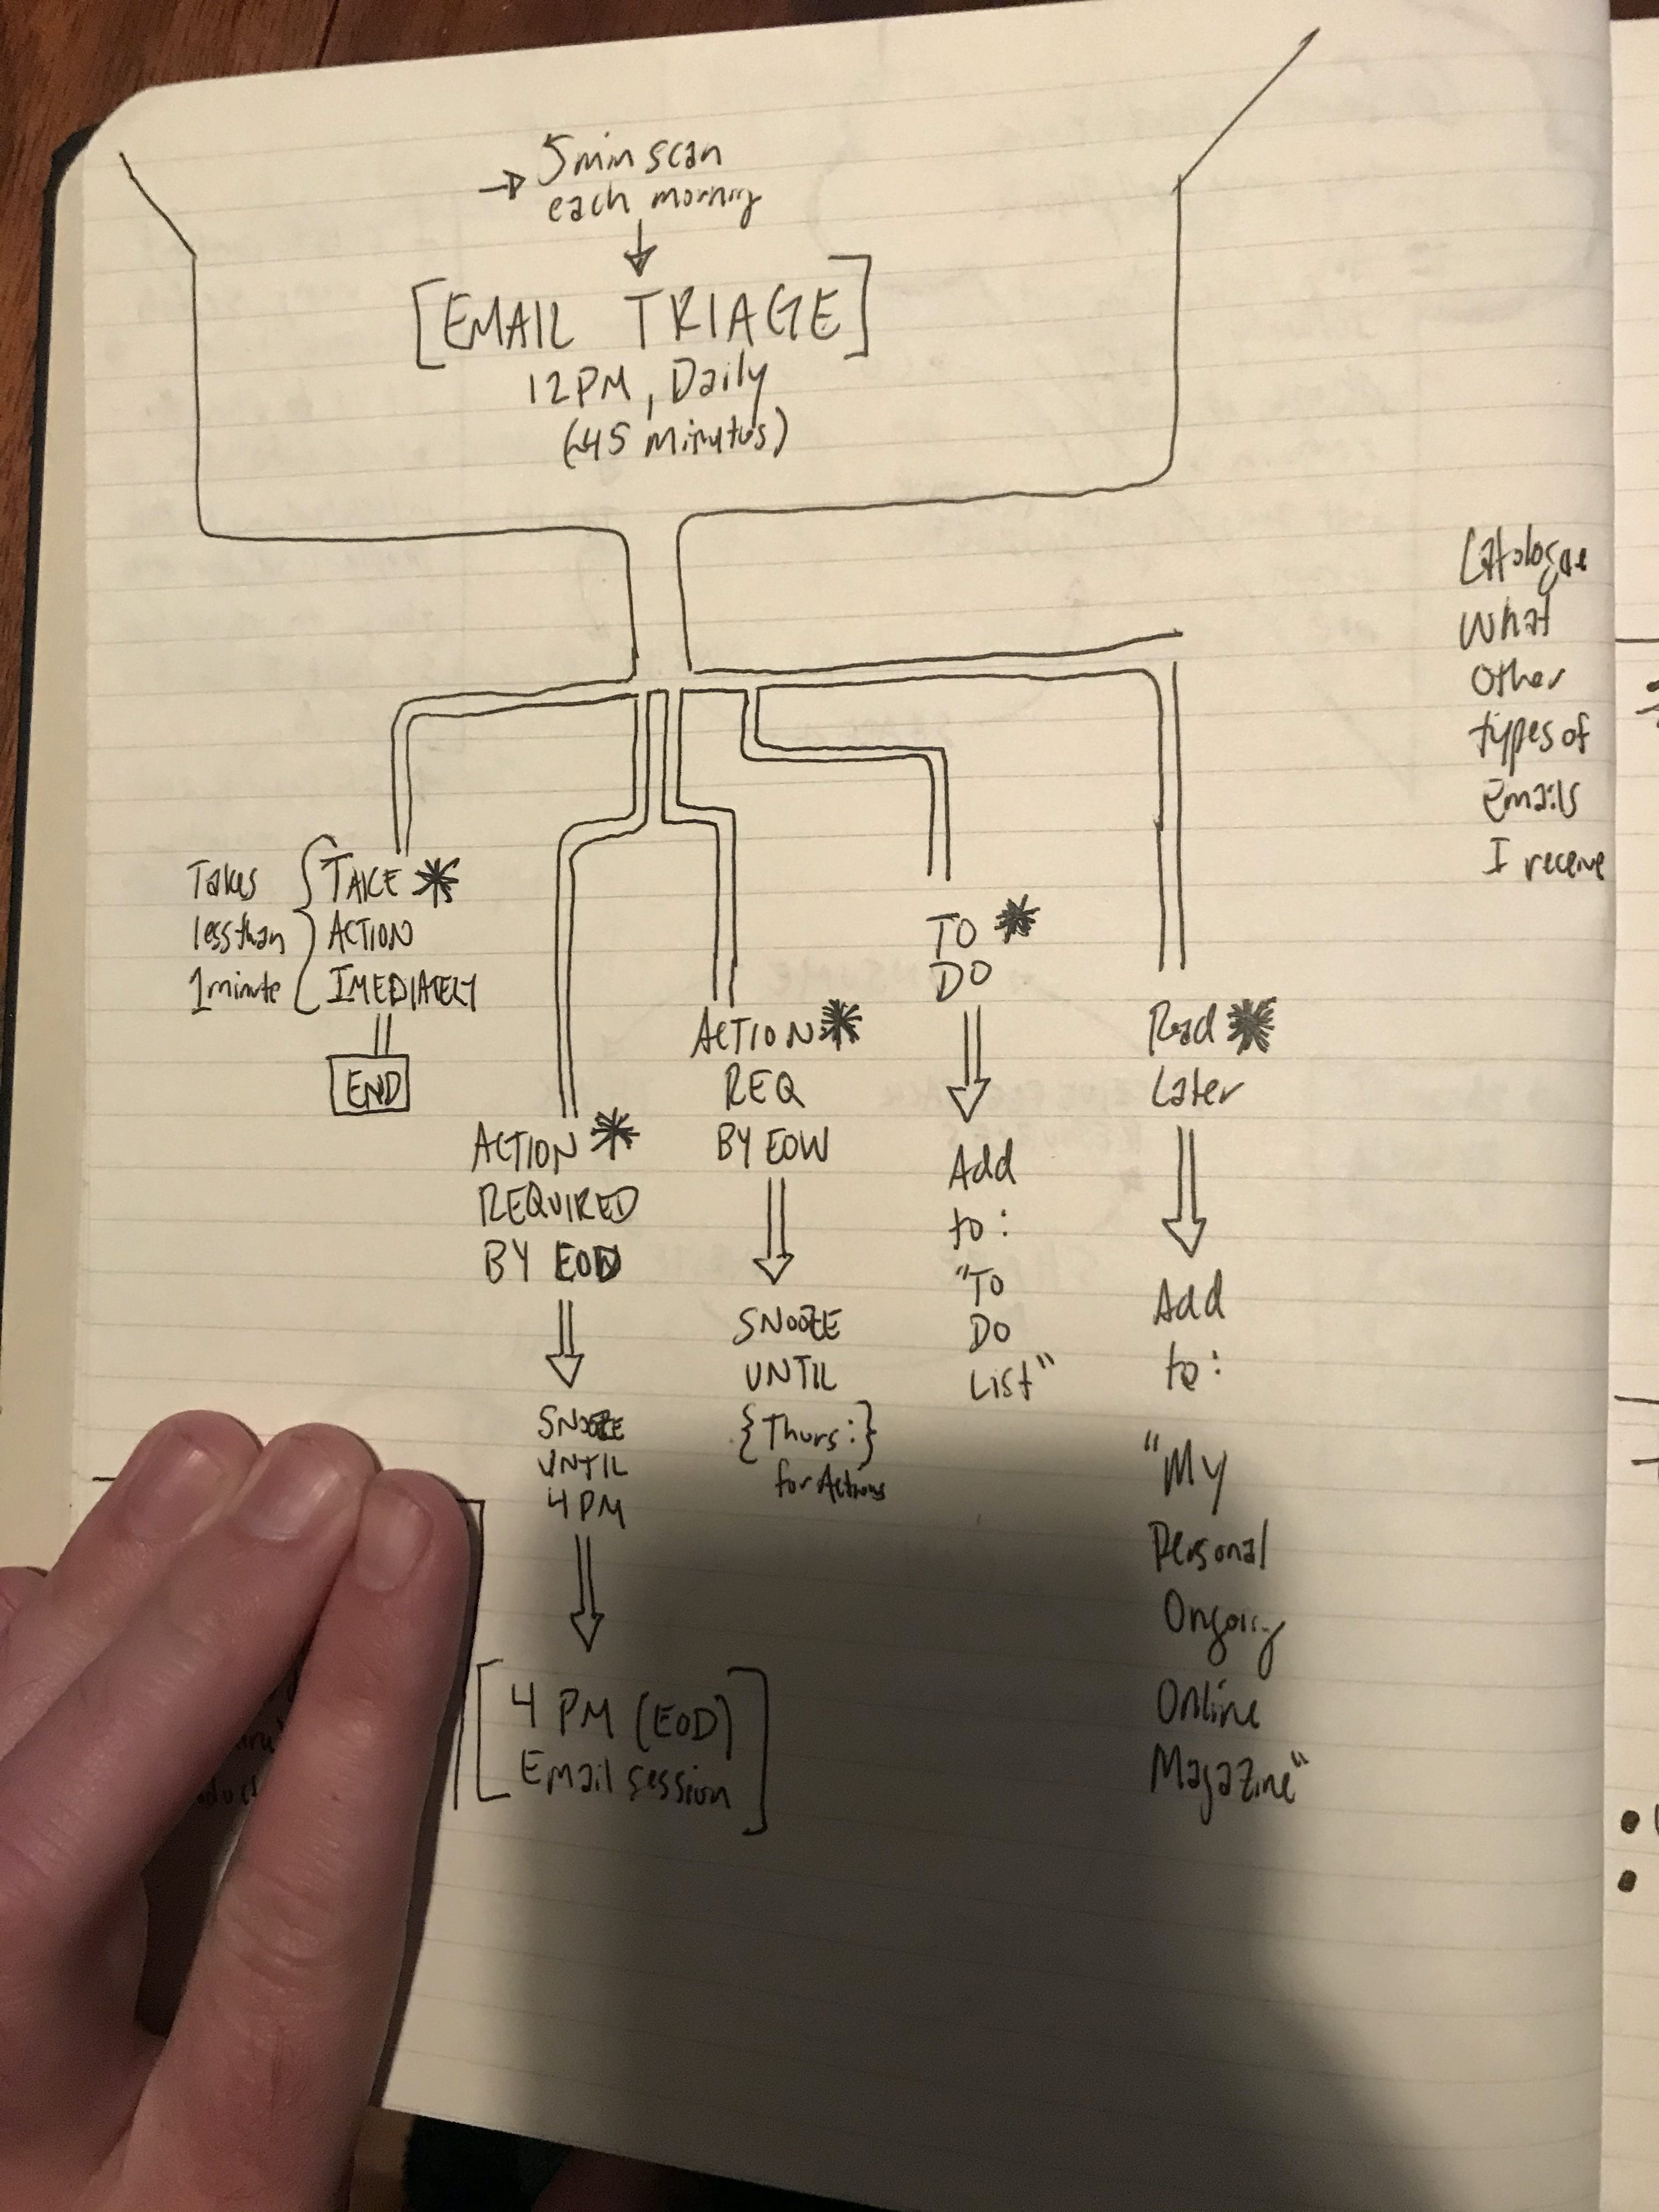 → 5 min scan
each morning
[EMAIL TRIAGE]
12PM, Daily
(~45 minutes)
Catologue
What
Other
types of
Emails
I receive
Takes
less than
1 minute
TAKE *
ACTION
IMEDIATELY
END
ACTION *
REQUIRED
BY EOD
SNOOZE
UNTIL
4 PM
[4 PM (EOD)
Email session]
ACTION *
REQ
BY EOW
SNOOZE
UNTIL
{Thurs:}
for Actions
TO *
DO
Add
to:
"To
Do
List"
Read *
Later
Add
to:
"My
Personal
Ongoing
Online
Magazine"